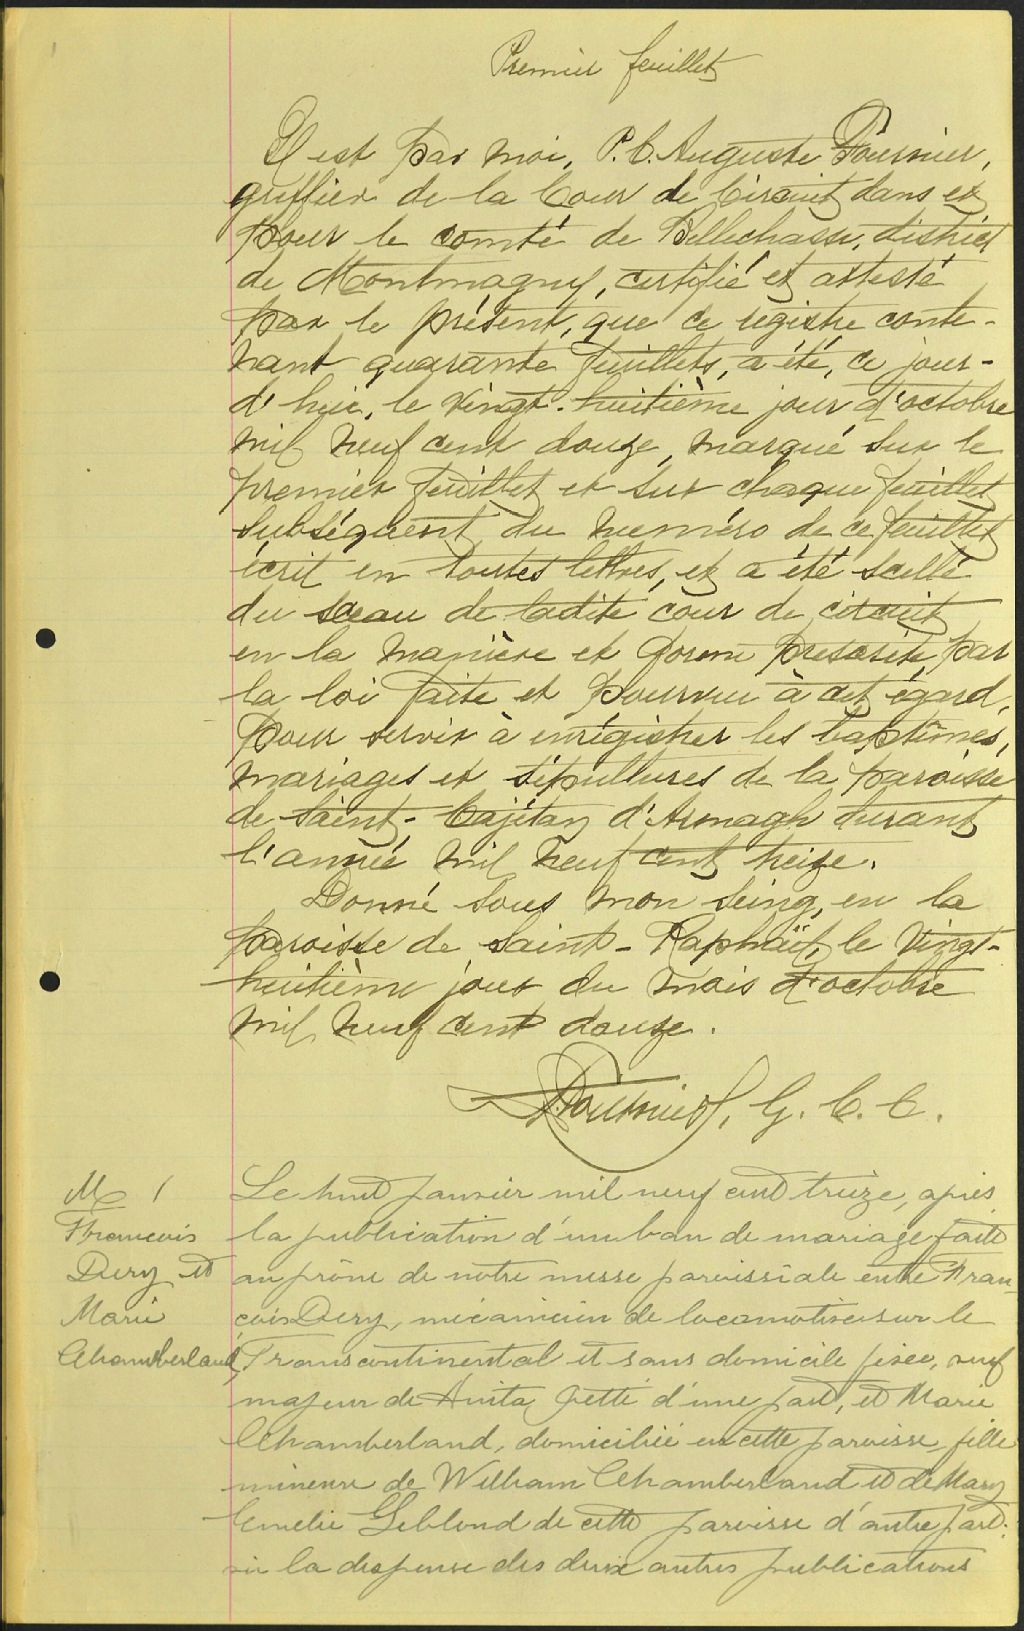 Premier feuillet
Il est par moi, P. C. Auguste Fournier,
greffier de la Cour de Circuit dans et
pour le comté de Bellechasse, district
de Montmagny, certifié et attesté
par le présent, que ce registre conte-
nant quarante feuillets, a été, ce jour-
d'hui, le vingt-huitième jour d'octobre
mil neuf cent douze, marqué sur le
premier feuillet et sur chaque feuillet
subséquent du numéro de ce feuillet
écrit en toutes lettres, et a été scellé
du sceau de ladite cour de circuit
en la manière et forme prescrite par
la loi faite et pourvue à cet égard,
pour servir à enrégistrer les baptêmes,
mariages et sépultures de la paroisse
de Saint-Cajétan d'Armagh durant
l'année mil neuf cent treize.
Donné sous mon seing, en la
paroisse de Saint-Raphaël, le vingt-
huitième jour du mois d'octobre
mil neuf cent douze.
Fournier, G. C. C.
M 1
Francois
Dery et
Marie
Chamberland
Le huit janvier mil neuf cent treize, après
la publication d'un ban de mariage faite
au prône de notre messe paroissiale entre Fran-
cois Dery, mécanicien de locomotive sur le
Transcontinental et sans domicile fixe, veuf
majeur de Anita Jetté d'une part, et Marie
Chamberland, domiciliée en cette paroisse, fille
mineure de William Chamberland et de Mary
Emelie Leblond de cette paroisse d'autre part.
vu la dispense des deux autres publications